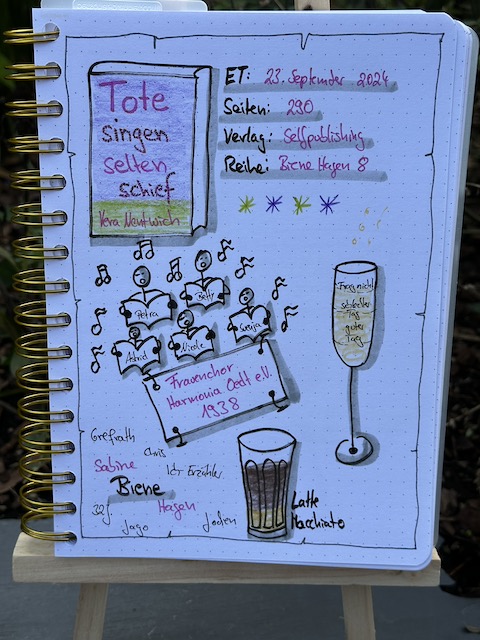 Tote
singen
selten
schief
Vera Nentwich
ET: 23. September 2024
Seiten: 290
Verlag: Selfpublishing
Reihe: Biene Hagen 8
Petra
Betty
Astrid
Nicole
Svenja
Frauenchor
Harmonia Oedt e.V.
1938
Frag nicht
schlechter
Tag
guter
Tag
Grefrath
Chris
Sabine
Ich Erzähler
Biene
Hagen
32J
Jago
Jochen
Latte
Macchiato